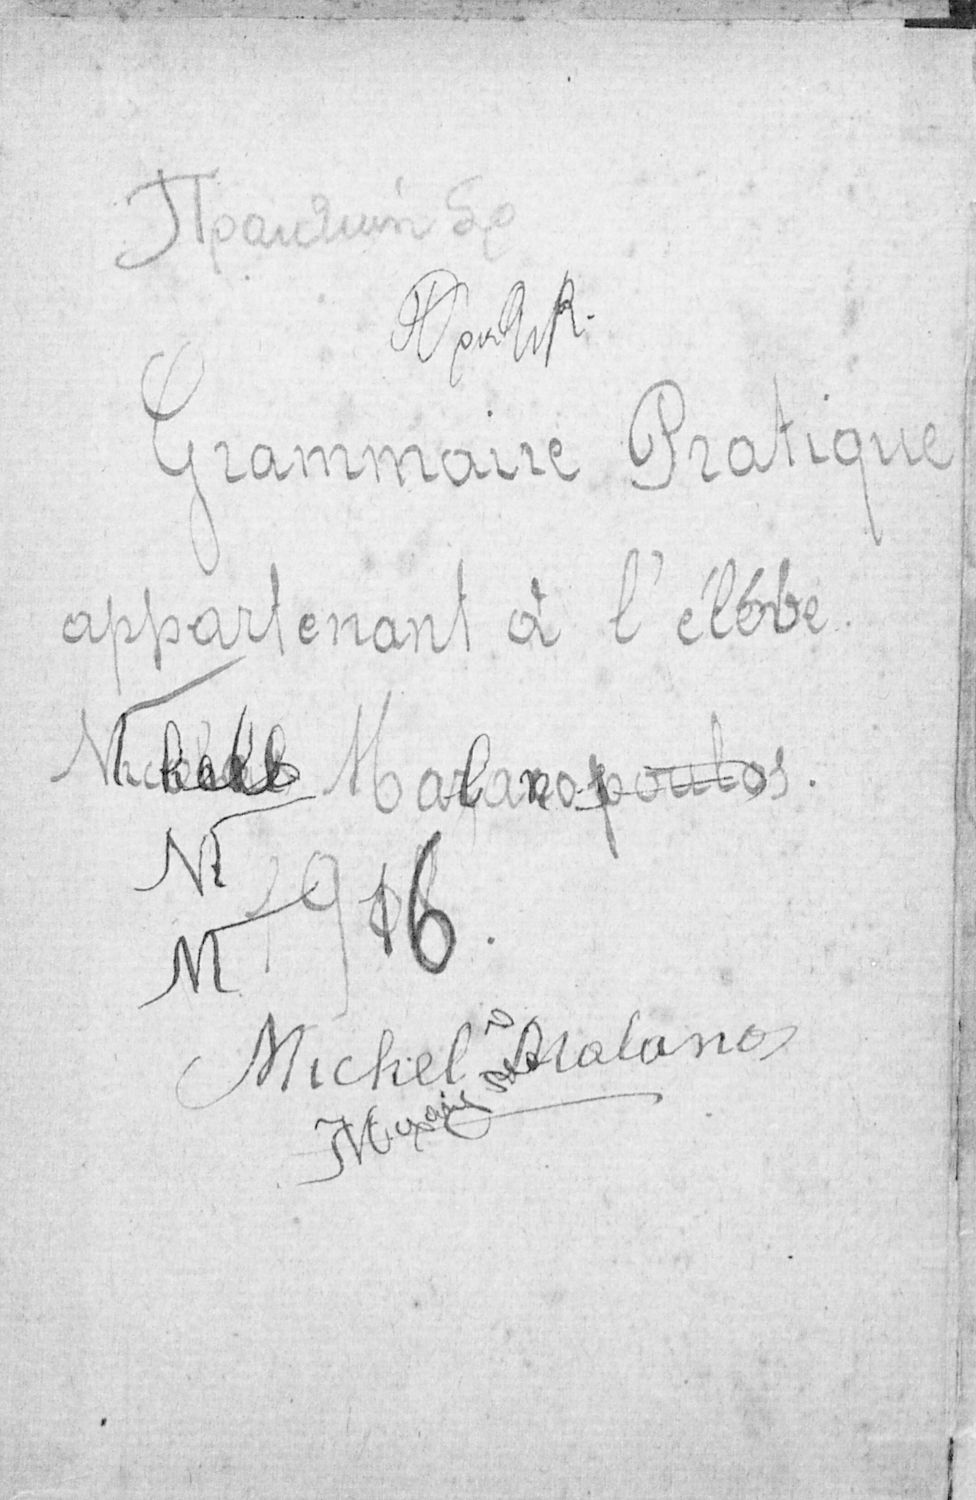 Πρακτική Γρ
Grammaire Pratique
appartenant à l'élève
Michel Malanopoulos.
1916.
M
M
Michel Malanos
Μιχαήλ